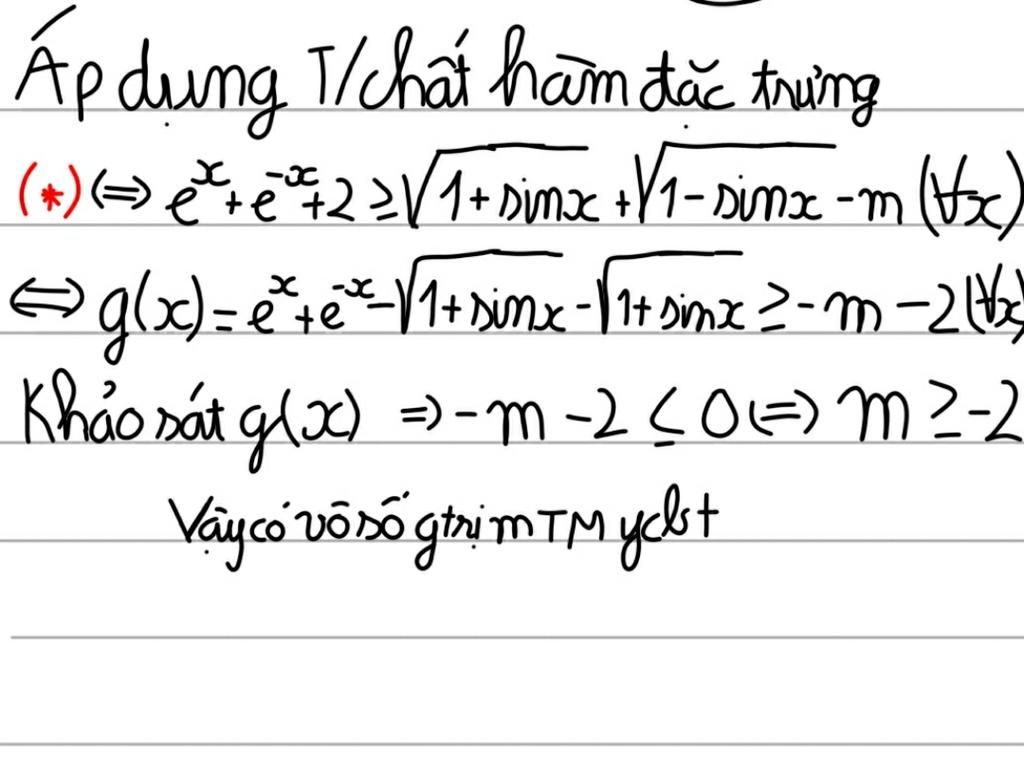 Áp dụng T/chất hàm đặc trưng
(*) ⇔ eˣ + e⁻ˣ + 2 ≥ √(1 + sinx) + √(1 - sinx) - m (∀x)
⇔ g(x) = eˣ + e⁻ˣ - √(1 + sinx) - √(1 + sinx) ≥ - m - 2 (∀x)
Khảo sát g(x) ⇒ - m - 2 ≤ 0 ⇔ m ≥ -2
Vậy có vô số gtrị m TM ycbt